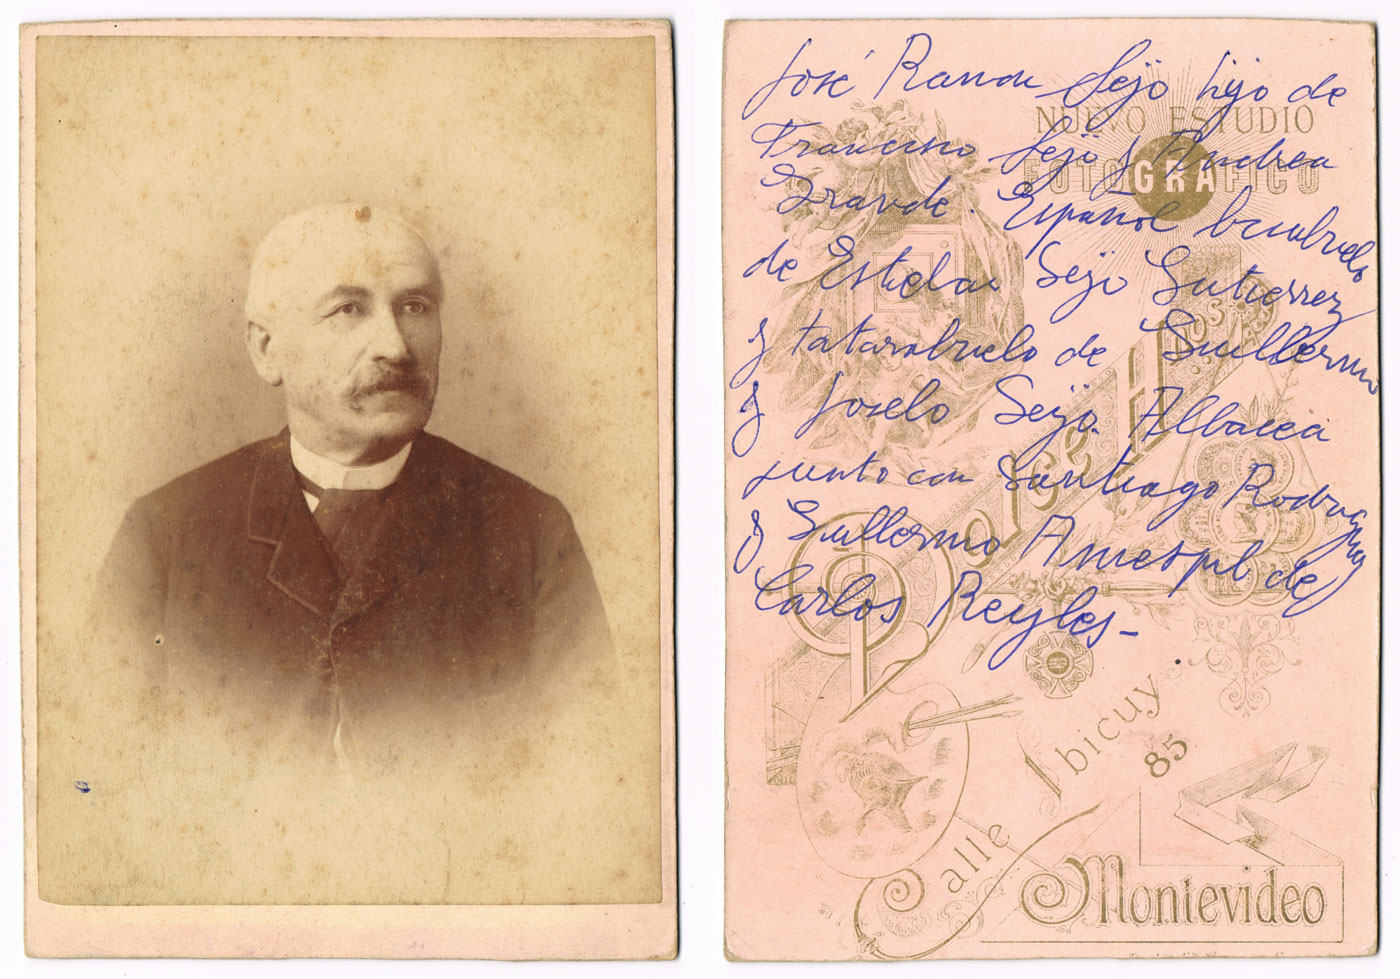 José Ramon Seijo hijo de
Francisco Seijo y Andrea
Grande. Español bisabuelo
de Estela Seijo Gutierrez
y tatarabuelo de Guillermo
y Joselo Seijo. Albacea
junto con Santiago Rodriguez
y Guillermo de
Carlos Reyles-
NUEVO ESTUDIO
FOTOGRAFICO
Dolce Hos
Calle Ibicuy
85
Montevideo